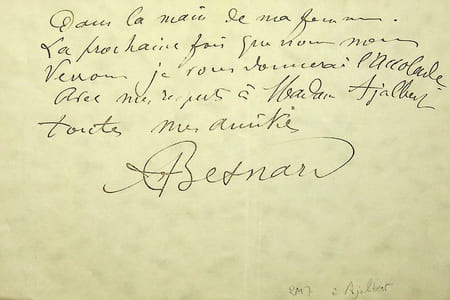 Dans la main de ma femme.
La prochaine fois que nous nous
Verrons je vous donnerai l'accolade
Avec mes respects à Madame Ajalbert
toutes mes amitiés
ABesnard
2217 à Ajalbert